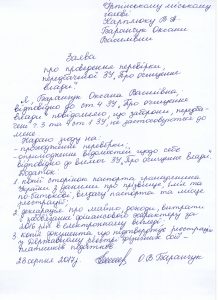 Ірпінському міському
голові
Карплюку В А
Баранчук Оксани
Василівни
Заява
про проведення перевірки,
передбаченої ЗУ „Про очищення
влади"
Я, Баранчук Оксана Василівна,
відповідно до ст. 4 ЗУ „Про очищення
влади" повідомляю, що заборони, передба-
чені ч. 3 та 4 ст 1 ЗУ не застосовуються до
мене
Надаю згоду на
- проведення перевірки,
- оприлюднення відомостей щодо себе
відповідно до вимог ЗУ „Про очищення влади".
Додаток
1 копії сторінок паспорта громадянина
України з даними про прізвище, ім'я та
по-батькові, видачу паспорта та місце
реєстрації
2 декларація про майно, доходи, витрати
і зобов'язання фінансового характеру за
рік в електронному вигляді
3 копія документа, що підтверджує реєстрацію
у Державному реєстрі фізичних осіб -
платників податків
28 серпня 2017 О В Баранчук